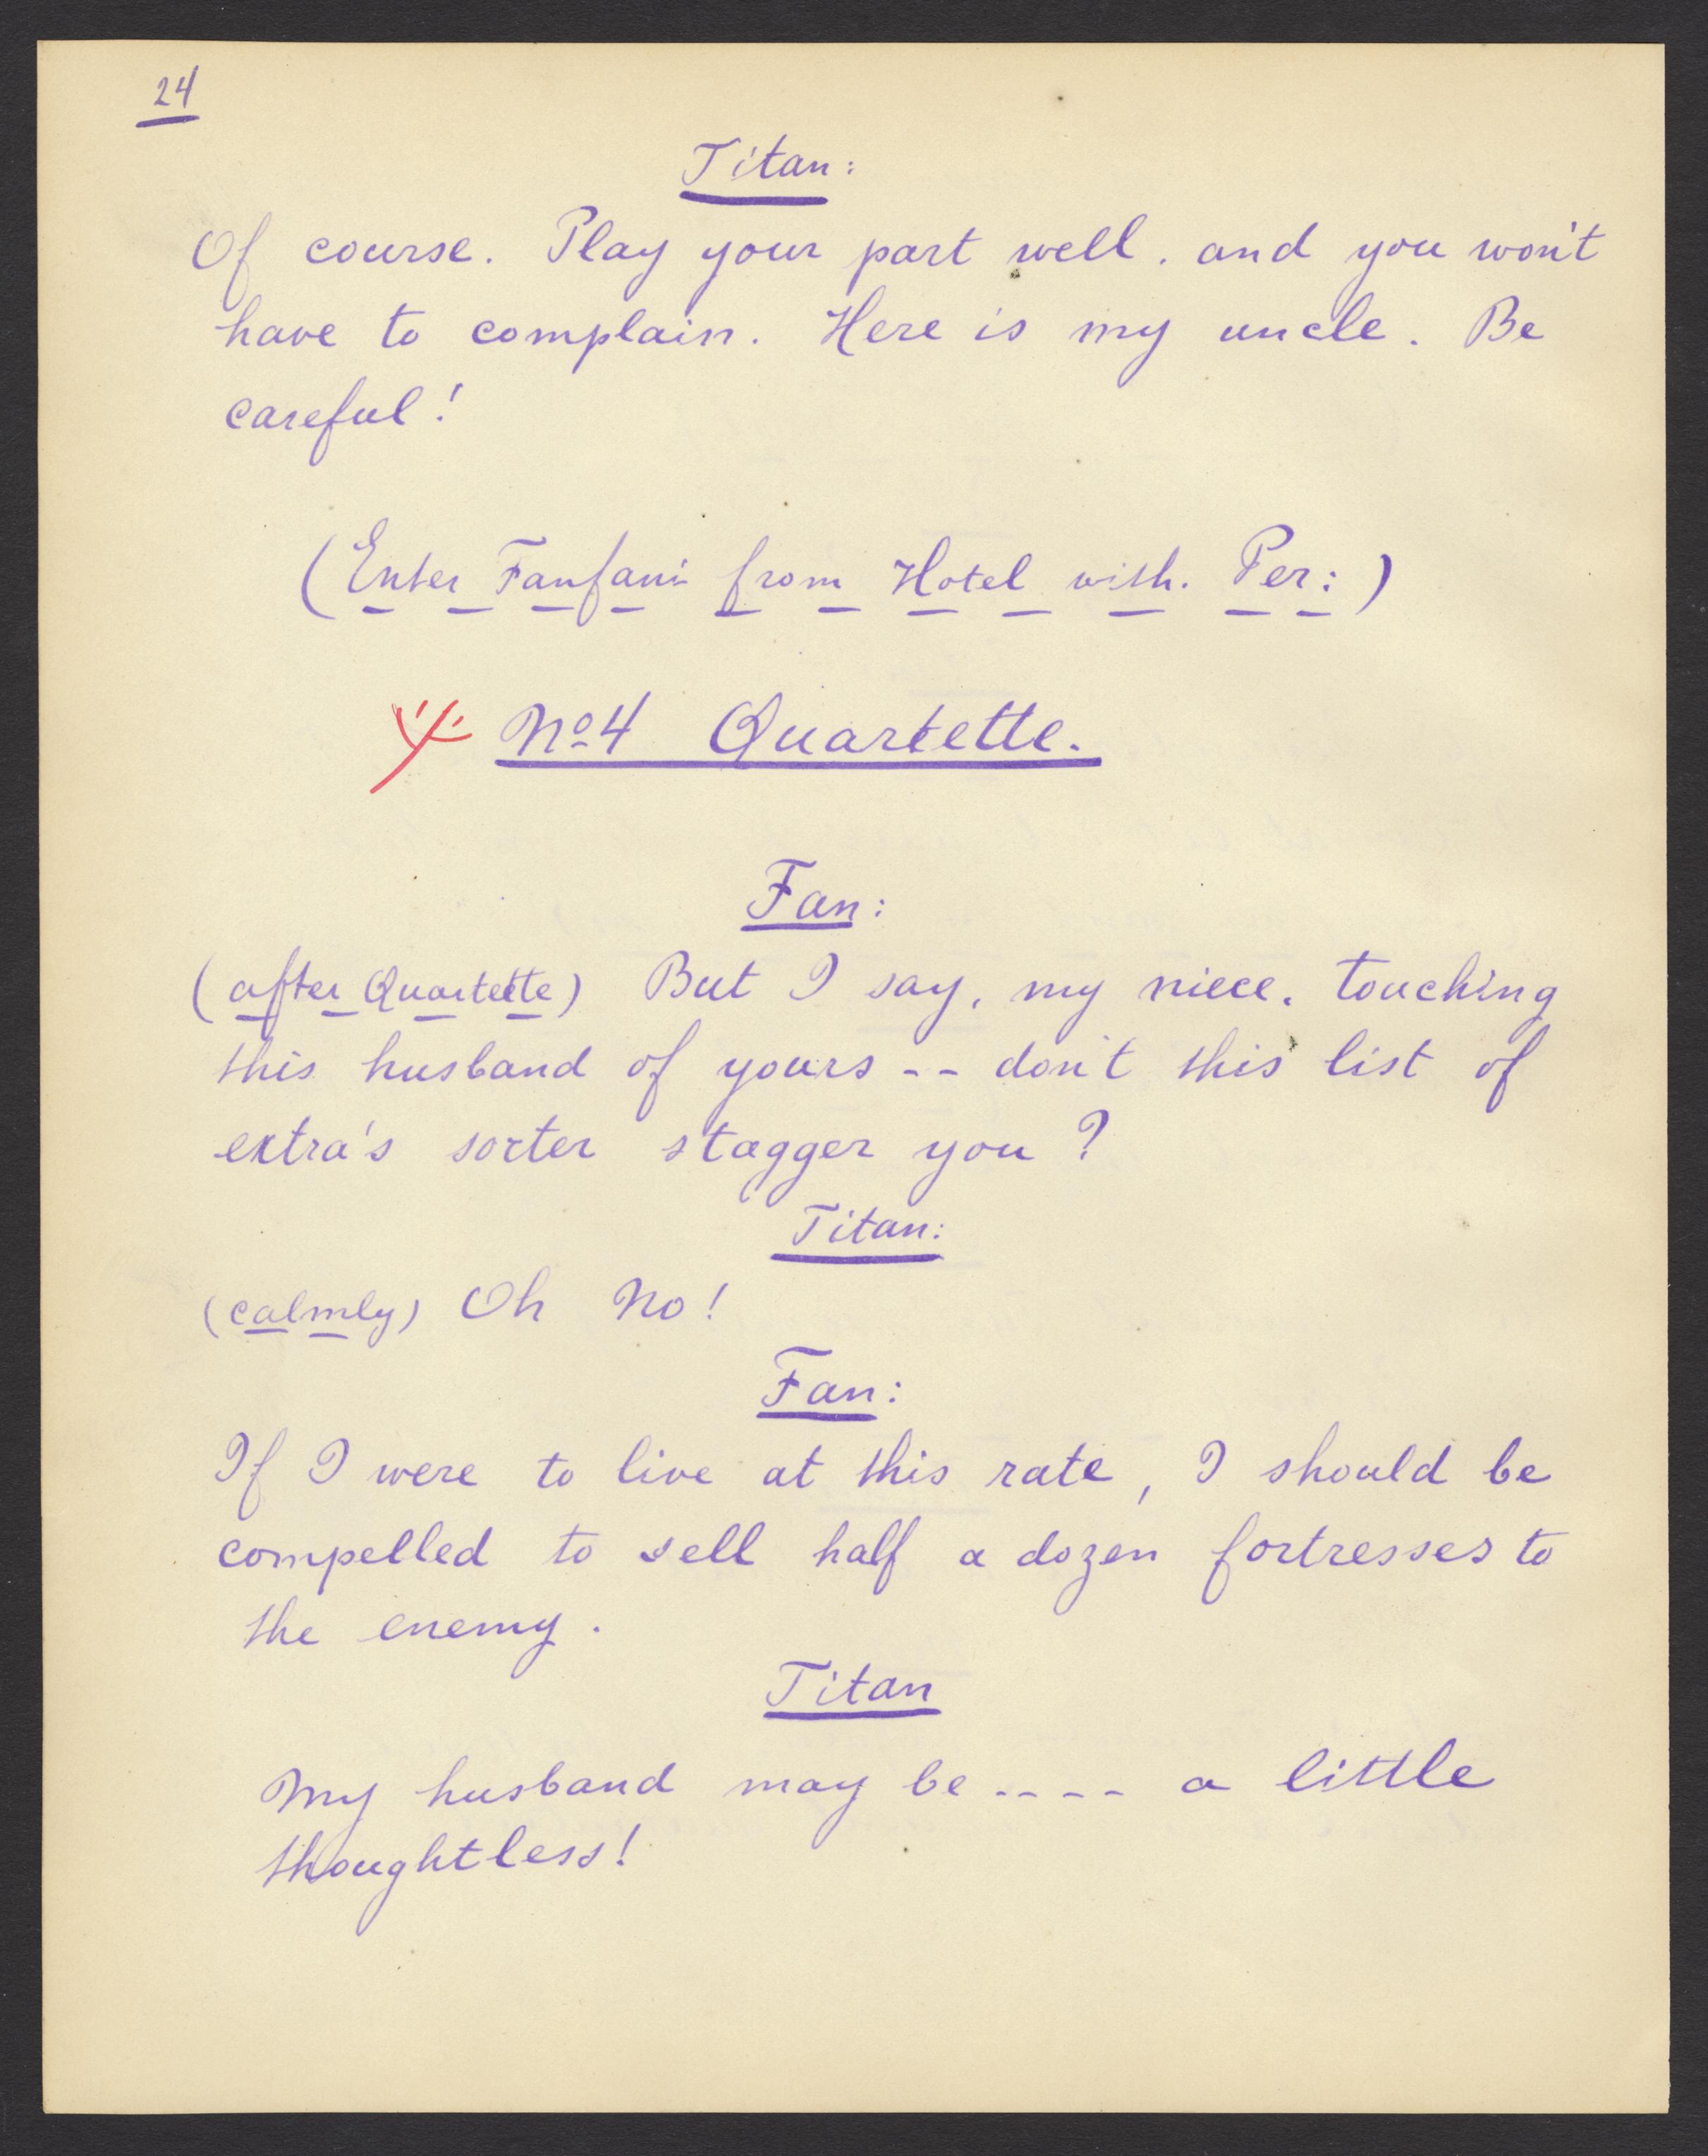 24
Titan:
Of course. Play your part well. and you won't
have to complain. Here is my uncle. Be
careful!
(Enter Fanfani from Hotel with. Per:)
No 4 Quartette.
Fan:
(after Quartette) But I say, my niece. touching
this husband of yours -- don't this list of
extra's sorter stagger you?
Titan:
(calmly) Oh No!
Fan:
If I were to live at this rate, I should be
compelled to sell half a dozen fortresses to
the enemy.
Titan
My husband may be ---- a little
thoughtless!